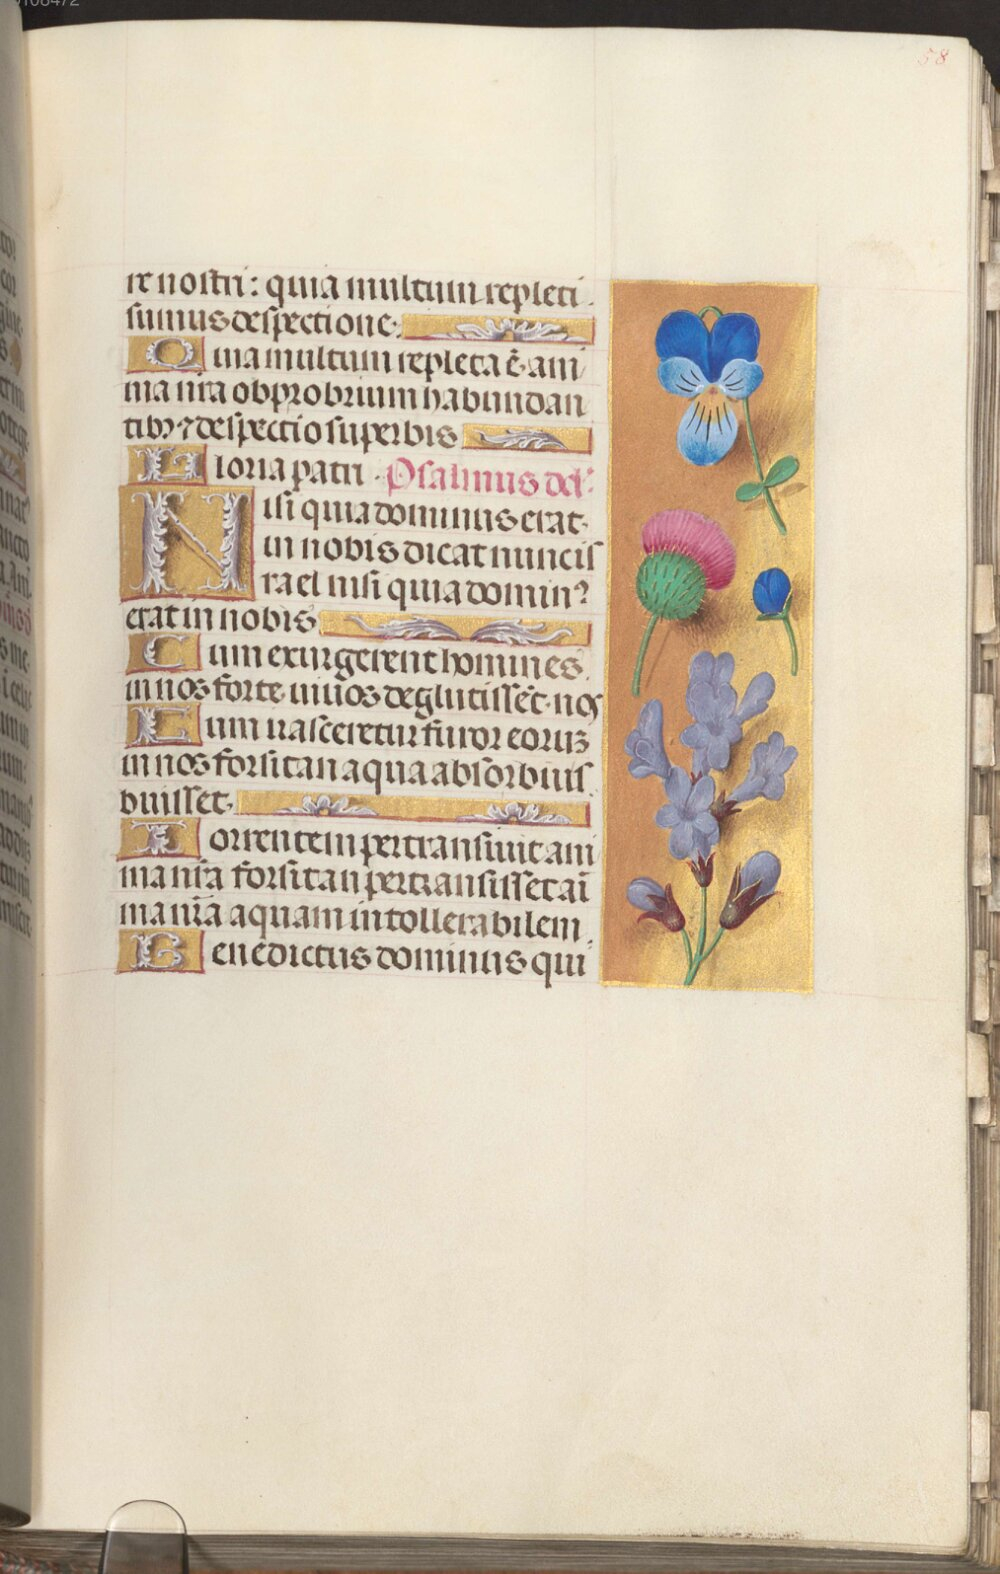 58
re nostri: quia multum repleti
sumus despectione.
Quia multum repleta ē ani
ma nr̄a obprobrium habundan
tibꝫ ⁊ despectio superbis
Gloria patri. Psalmus dd̄.
Nisi quia dominus erat
in nobis dicat nunc is
rael nisi quia domin⁹
erat in nobis
Cum exurgerent homines
in nos forte viuos deglutissēt nos
Cum irasceretur furor eorum
in nos forsitan aqua absorbuis
buisset.
Torrentem pertransiuit ani
ma nr̄a forsitan pertransisset ai
ma nr̄a aquam intollerabilem
Benedictus dominus qui